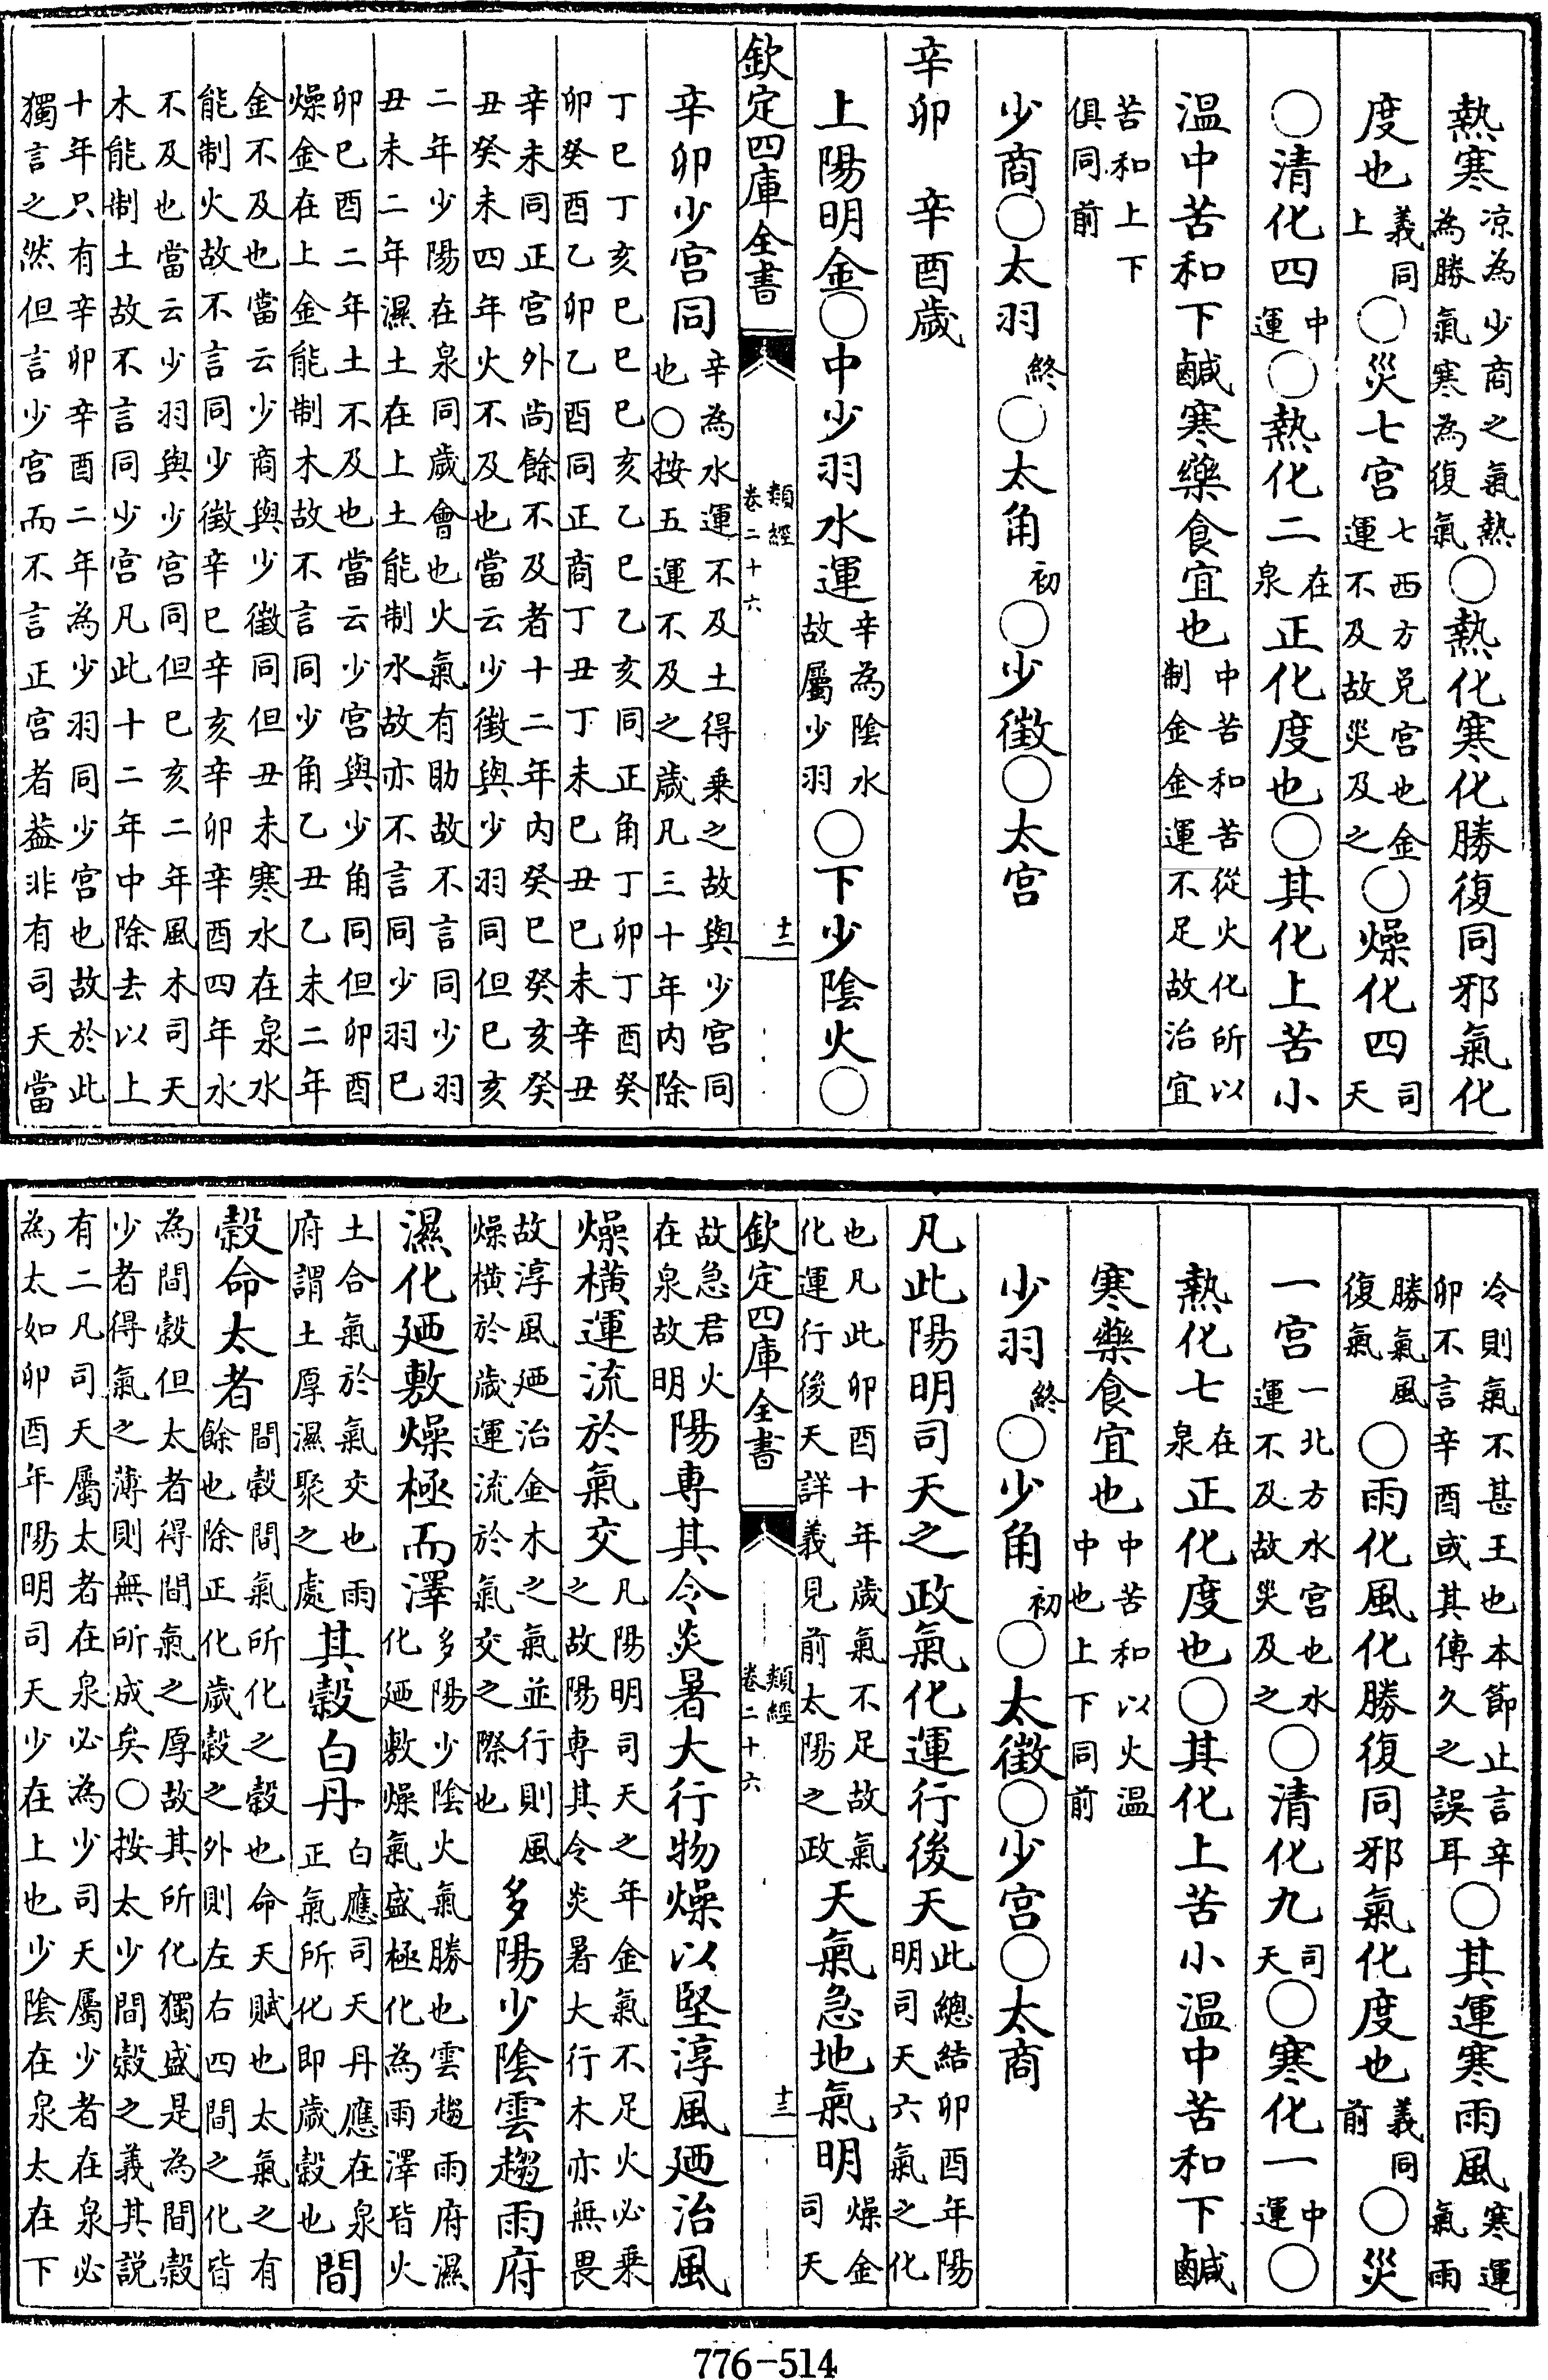 熱寒涼為少商之氣熱為勝氣寒為復氣○熱化寒化勝復同邪氣化
度也義同上○災七宮七西方兌宮也金運不及故災及之○燥化四司天
○清化四中運○熱化二在泉正化度也○其化上苦小
温中苦和下鹹寒藥食宜也中苦和苦從火化所以制金金運不足故治宜
苦和上下俱同前
少商○太羽終○太角初○少徵○太宮
辛卯　辛酉歲
上陽明金○中少羽水運辛為陰水故屬少羽○下少陰火○
欽定四庫全書　類經卷二十六　十二
辛卯少宮同辛為水運不及土得乗之故與少宮同也○按五運不及之歲凡三十年内除
丁巳丁亥巳巳巳亥乙巳乙亥同正角丁卯丁酉癸
卯癸酉乙卯乙酉同正商丁丑丁未巳丑巳未辛丑
辛未同正宮外尚餘不及者十二年内癸巳癸亥癸
丑癸未四年火不及也當云少徵與少羽同但巳亥
二年少陽在泉同歲會也火氣有助故不言同少羽
丑未二年濕土在上土能制水故亦不言同少羽巳
卯巳酉二年土不及也當云少宮與少角同但卯酉
燥金在上金能制木故不言同少角乙丑乙未二年
金不及也當云少商與少徵同但丑未寒水在泉水
能制火故不言同少徵辛巳辛亥辛卯辛酉四年水
不及也當云少羽與少宮同但巳亥二年風木司天
木能制土故不言同少宮凡此十二年中除去以上
十年只有辛卯辛酉二年為少羽同少宮也故於此
獨言之然但言少宮而不言正宮者葢非有司天當
冷則氣不甚王也本節止言辛卯不言辛酉或其傳久之誤耳○其運寒雨風寒運氣雨
勝氣風復氣○雨化風化勝復同邪氣化度也義同前○災
一宮一北方水宮也水運不及故災及之○清化九司天○寒化一中運○
熱化七在泉正化度也○其化上苦小温中苦和下鹹
寒藥食宜也中苦和以火温中也上下同前
少羽終○少角初○太徵○少宮○太商
凡此陽明司天之政氣化運行後天此總結卯酉年陽明司天六氣之化
也凡此卯酉十年歲氣不足故氣化運行後天詳義見前太陽之政天氣急地氣明燥金司天
欽定四庫全書　類經卷二十六　十三
故急君火在泉故明陽專其令炎暑大行物燥以堅淳風廼治風
燥橫運流於氣交凡陽明司天之年金氣不足火必乗之故陽専其令炎暑大行木亦無畏
故淳風廼治金木之氣並行則風燥橫於歲運流於氣交之際也多陽少陰雲趨雨府
濕化廼敷燥極而澤多陽少陰火氣勝也雲趨雨府濕化廼敷燥氣盛極化為雨澤皆火
土合氣於氣交也雨府謂土厚濕聚之處其穀白丹白應司天丹應在泉正氣所化即歲穀也間
穀命太者間穀間氣所化之穀也命天賦也太氣之有餘也除正化歲穀之外則左右四間之化皆
為間穀但太者得間氣之厚故其所化獨盛是為間穀少者得氣之薄則無所成矣○按太少間穀之義其説
有二凡司天屬太者在泉必為少司天屬少者在泉必為太如卯酉年陽明司天少在上也少陰在泉太在下
776-514